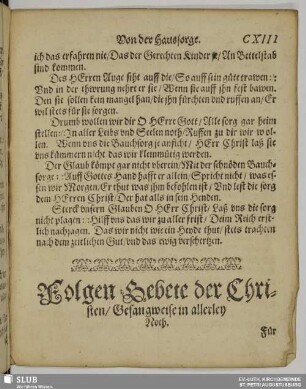 Von der Haussorge. CXIII
ich das erfahren nie/ Das der Gerechten Kinder je/ An Bettelstab
sind kommen.
Des HErren Auge siht auff die/ So auff sein güte trawen: :
Vnd in der thewrung nehrt er sie/ Wenn sie auff jhn fest bawen.
Den sie sollen kein mangel han/ die jhn fürchten vnd ruffen an/ Er
wil stets für sie sorgen.
Drumb wollen wir dir O HErre Gott/ Alle sorg gar heim
stellen: : In aller Leibs vnd Seelen noth/ Ruffen zu dir wir wol-
len. Wenn vns die Bauchsorge anficht/ HErr Christ laß sie
vns kümmern nicht das wir kleinmütig werden.
Der Glaub kömpt gar nicht vberein/ Mit der schnöden Bauch-
sorge: : Auff Gottes Hand hafft er allein/ Spricht nicht/ was es-
sen wir Morgen/ Er thut was jhm befohlen ist/ Vnd lest die sorg
dem HErren Christ/ Der hat alls in seim Henden.
Sterck vnsern Glauben O HErr Christ/ Laß vns die sorg
nicht plagen: : Hilff vns das wir zu aller frist/ Deim Reich erst-
lich nachjagen. Das wir nicht wie ein Heyde thut/ stets trachten
nach dem zeitlichen Gut/ vnd das ewig verschertzen.
Folgen Gebete der Chri-
sten/ Gesangweise in allerley
Noth.
Für
SLUB
Wir führen Wissen.
EV.-LUTH. KIRCHGEMEINDE
ST. PETRI AUGUSTUSBURG